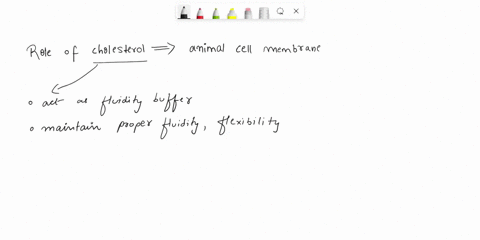 Role of cholesterol ⟹ animal cell membrane
• act as fluidity buffer
• maintain proper fluidity, flexibility